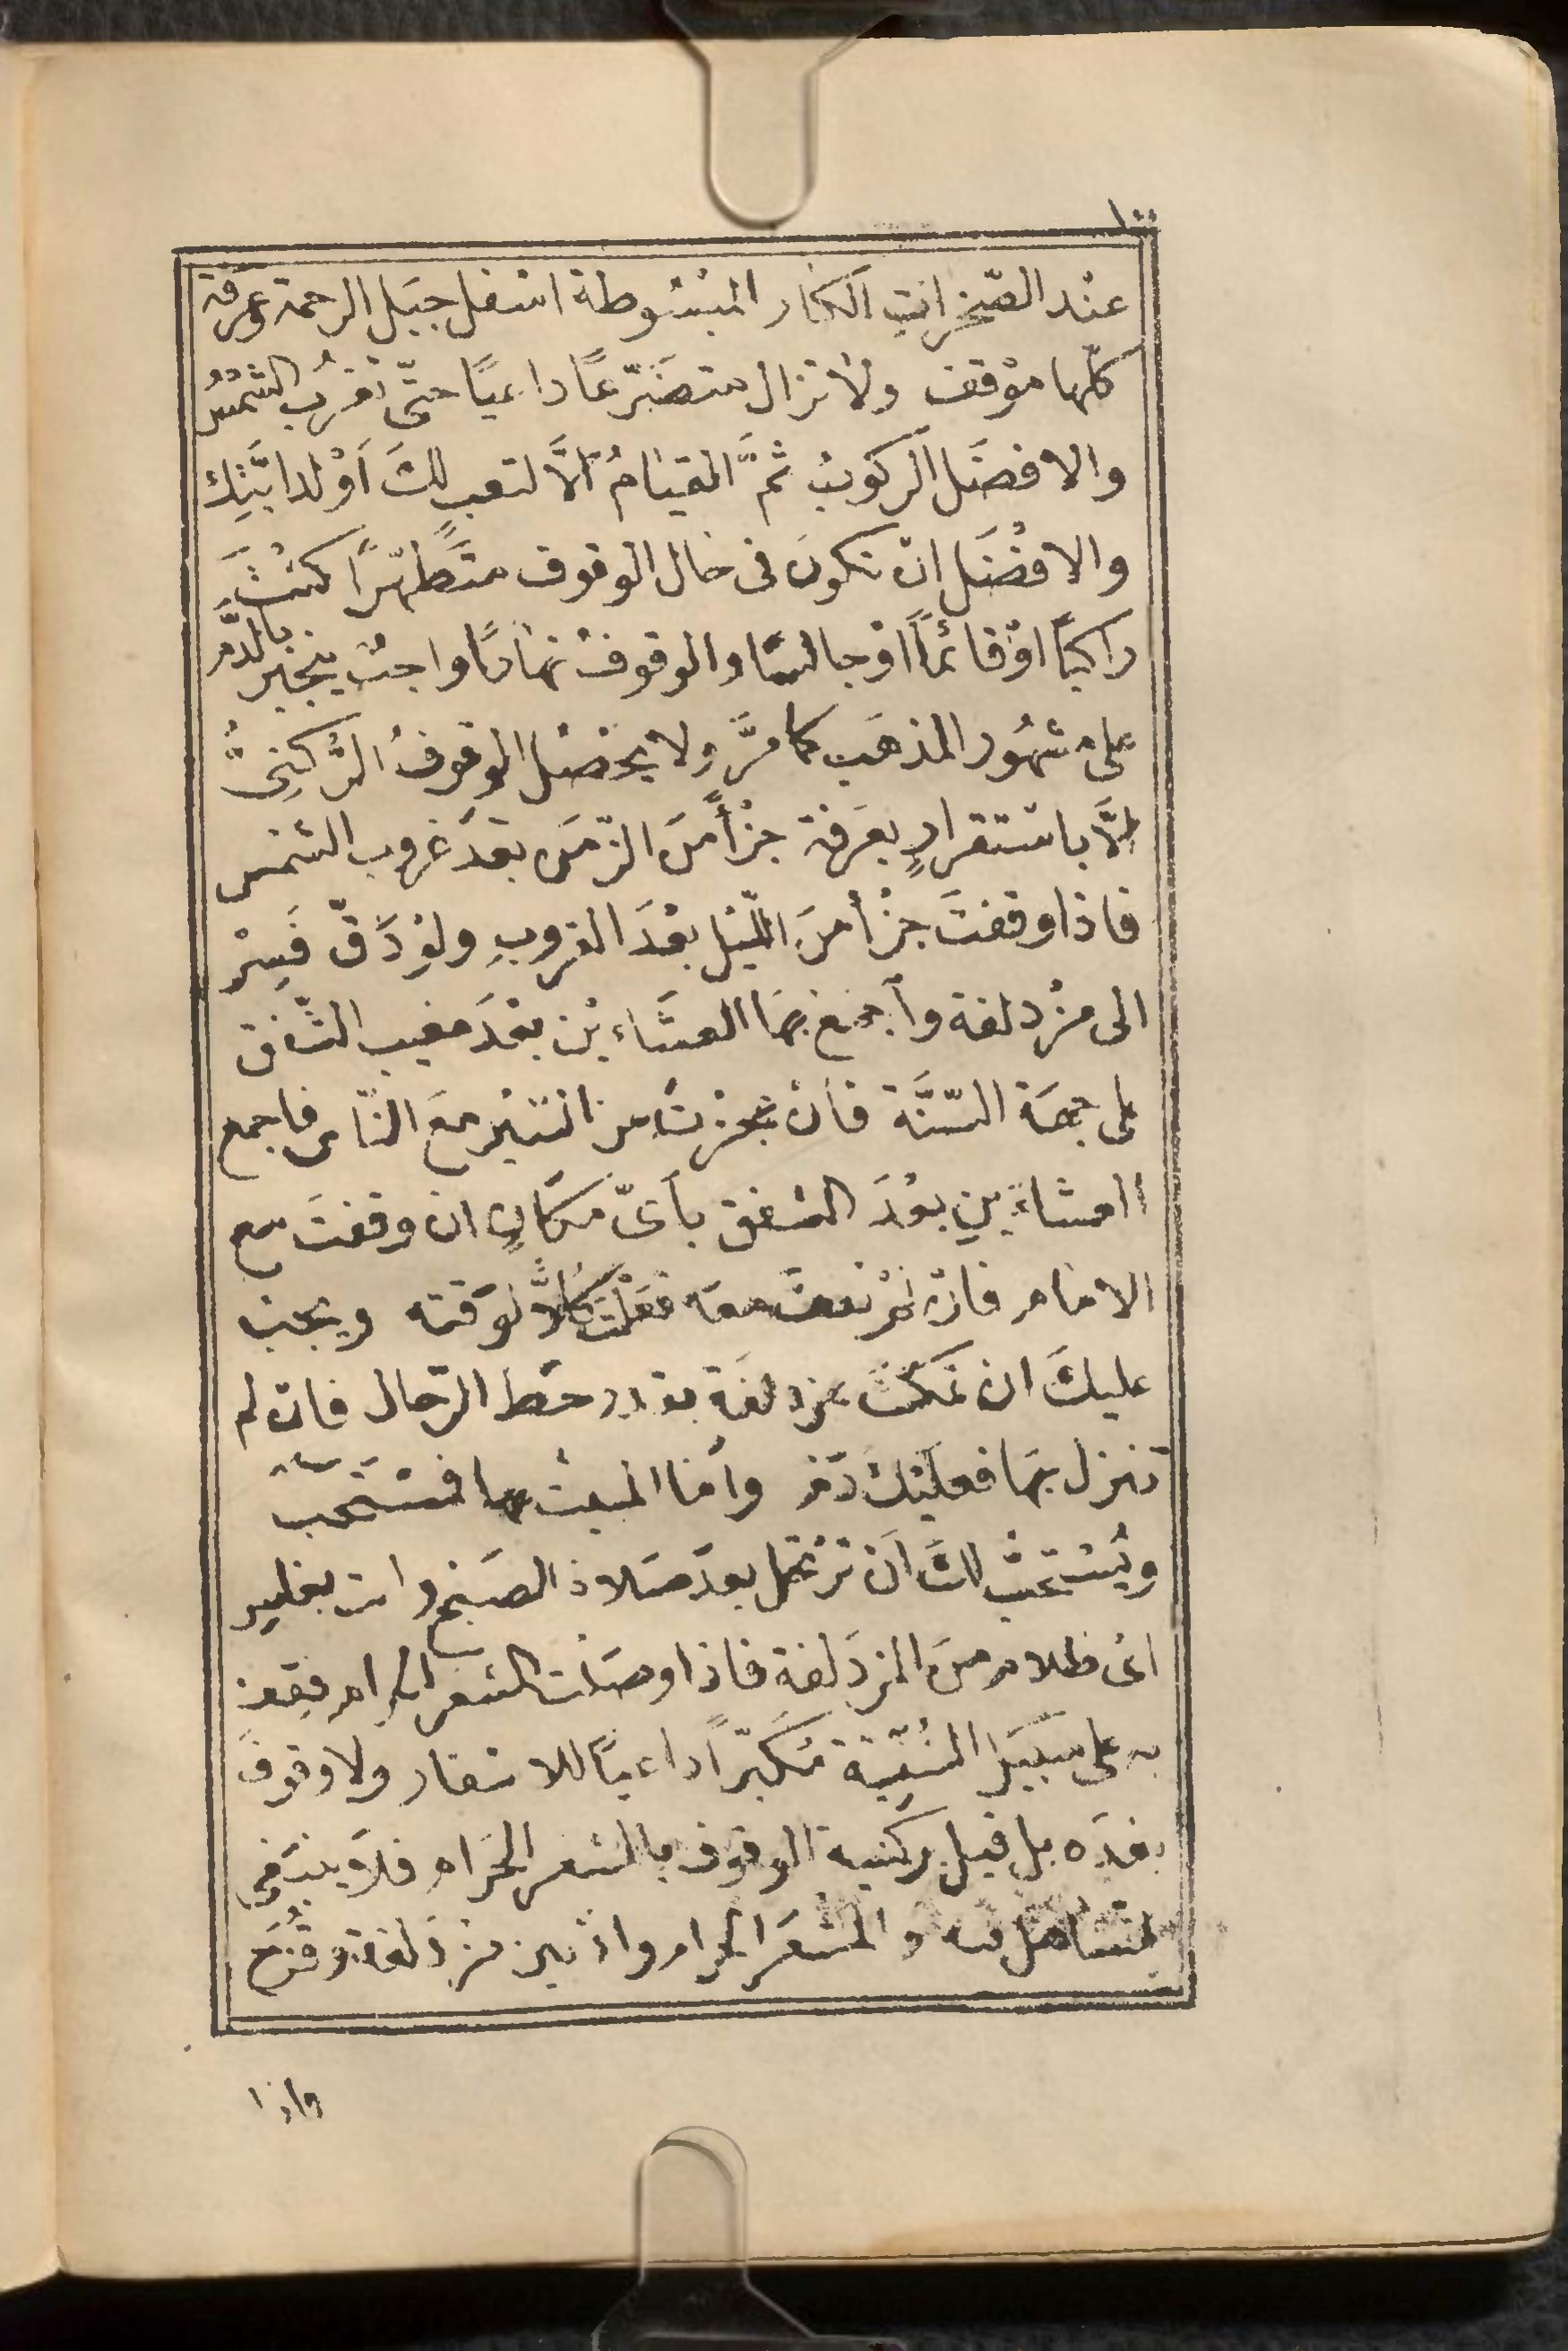 ١٠٠
عنْد الصّخرات الكبار المبْسُوطة اسْفل جبَل الرحمة وعرَفة
كلّها موْقف ولا تزال متضَرّعًا داعيًا حتّى تغرُب الشّمْسُ
والافضَل الركوبُ ثمَّ القيامُ الَّا لتعب لكَ اَوْ لدابَّتِك
والافْضَل انْ تكونَ فى حال الوقوف متَطهّرًا كنْتَ
راكبًا اوْ قائمًا اوْ جالسًا والوقوفُ نهارًا واجبٌ ينجَبر بالدَّم
على مشهُور المذهَب كما مرَّ ولا يحْصُل الوقوفُ الرُّكنِىُّ
الَّا باسْتقرارٍ بعَرفة جزْأً منَ الزّمَن بعْدَ غروب الشمْس
فاذا وقفتَ جزْأ منَ اللّيْل بعْدَ الغروبِ ولوْ دَقّ فَسِرْ
الى مزْدلفة وأجْمع بهَا العشَاءيْن بعْدَ مغيب الشّفق
على جهَة السّنَّة فانْ عجزتَ عن السَّيْر معَ النّاس فاجمع
العشاءَيْنِ بعْدَ الشفق بأىّ مكَانٍ ان وقفتَ مع
الامام فانْ لمْ تقفْ معَه فعَلْتَ كلاًّ لوَقته ويجبُ
عليكَ ان تمكثَ بمزدلفَة بقدر حَط الرّحال فانْ لم
تنزل بهَا فعلَيْكَ دَم وأمّا المبيتُ بها فمسْتَحَب
ويُسْتحَبّ لكَ اَنْ ترْتحل بعدَ صَلاة الصّبْح وانت بغلَس
اىْ ظلام منَ المزدَلفة فاذا وصَلْت المشعَر الحرام فقِفْ
به على سَبيَل السُّنّيّة مُكَبّراً داعيًا للاسْفار ولا وقوفَ
بعْدَه بل قيل بركنية الوقوف بالمشعر الحَرام فلاَ ينبَغى
التسَاهل فيه والمَشعَر الحرام وادٍ بين مزدَلفة وقُزَح
واذا